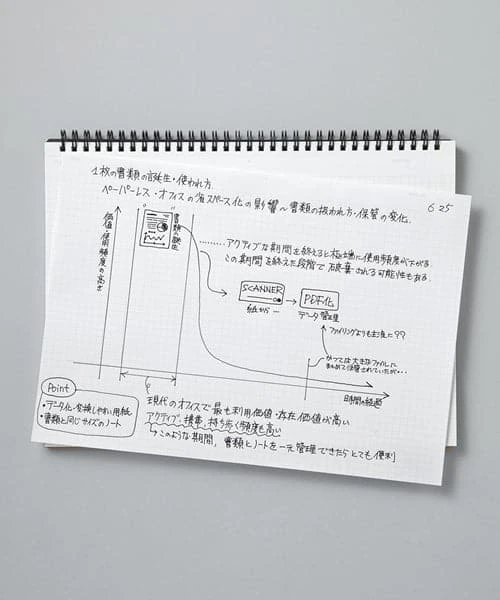 1枚の書類の誕生・使われ方.
ペーパーレス・オフィスの省スペース化の影響〜書類の扱われ方・保管の変化.
6.25
価値・使用頻度の高さ
書類の誕生
………アクティブな期間を終えると極端に使用頻度が下がる.
この期間を終えた段階で破棄される可能性もある.
SCANNER → PDF化
紙から… データ管理
ファイリングよりも主流に??
かつては大きなファイルに
まとめて保管されていたが…
時間の経過
Point
・データ化・変換しやすい用紙
・書類と同じサイズのノート
現代のオフィスで最も利用価値・存在価値が高い
アクティブ. 携帯、持ち歩く頻度も高い
↳このような期間, 書類とノートを一元管理できたらとても便利